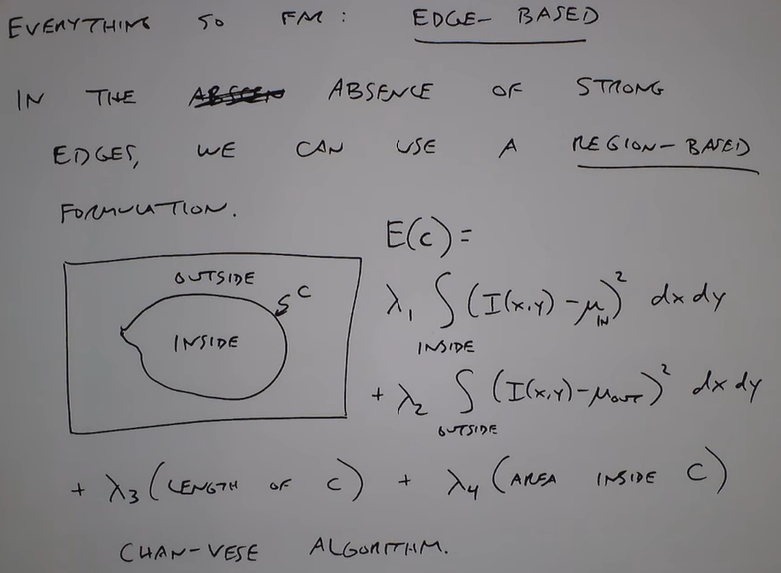 EVERYTHING SO FAR: EDGE-BASED
IN THE ABSENCE OF STRONG
EDGES, WE CAN USE A REGION-BASED
FORMULATION.
E(C) =
OUTSIDE
C
INSIDE
λ₁ ∫ (I(x,y) - μ_IN)² dx dy
INSIDE
+ λ₂ ∫ (I(x,y) - μ_OUT)² dx dy
OUTSIDE
+ λ₃ (LENGTH OF C) + λ₄ (AREA INSIDE C)
CHAN-VESE ALGORITHM.